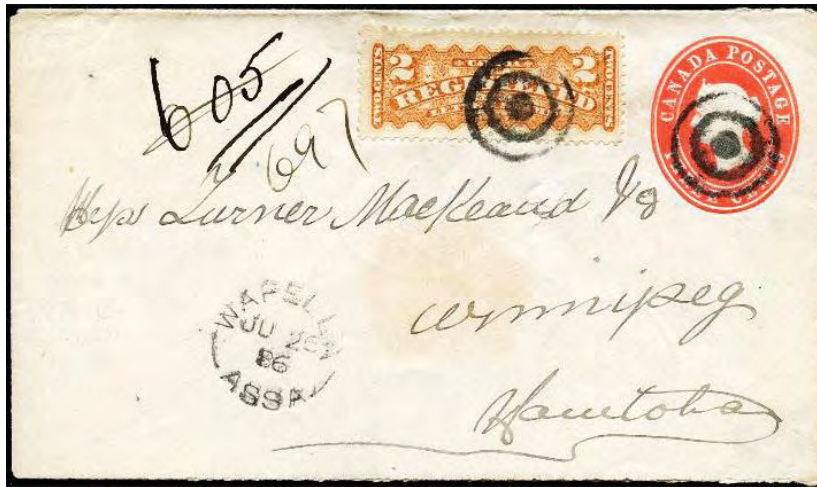 605
697
2 REGISTERED 2
TWO CENTS TWO CENTS
CANADA POSTAGE
CENTS
Turner MacKeand
Winnipeg
Manitoba
WAPELLA
86
ASSA